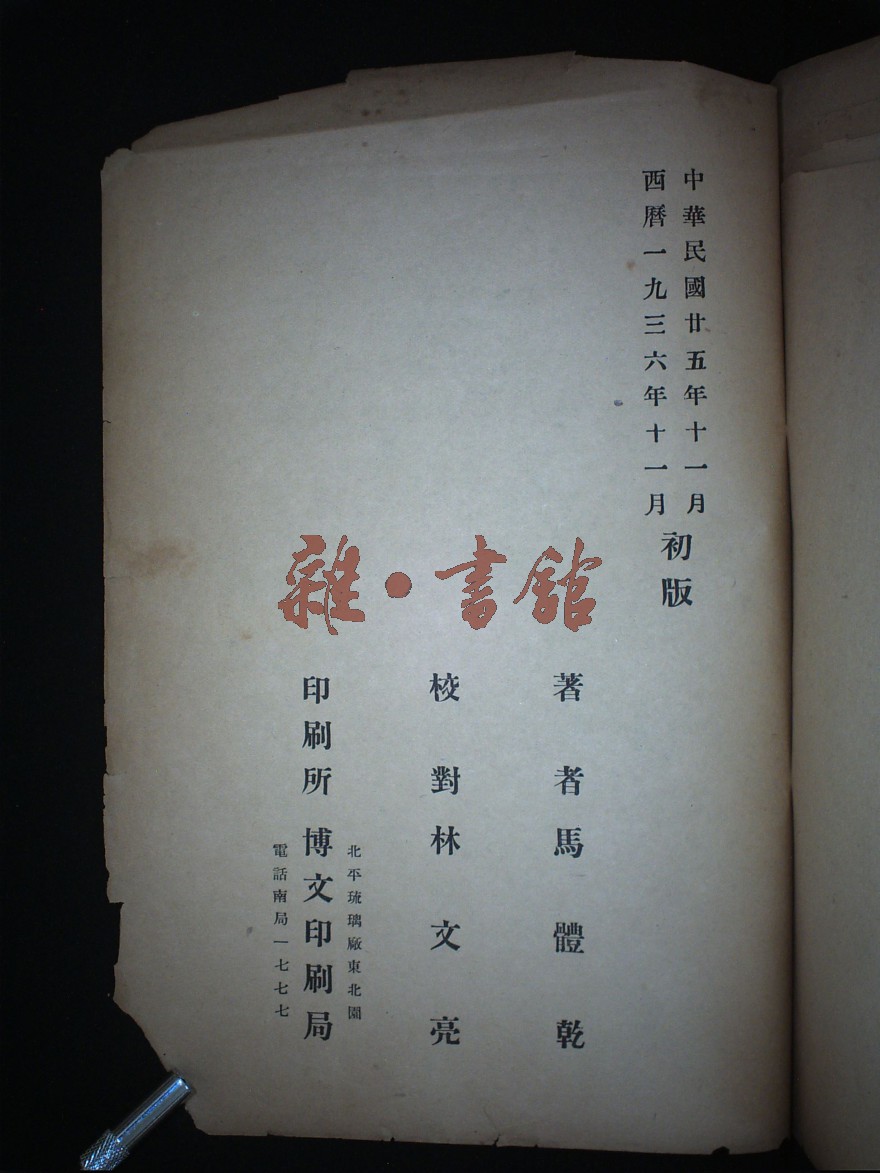 中華民國廿五年十一月
西曆一九三六年十一月
初版
著者馬體乾
校對林文亮
北平琉璃廠東北園
印刷所博文印刷局
電話南局一七七七
雜·書館